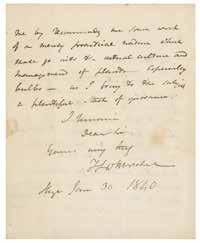 me by recommending me some work
of a merely practical nature which
shall go into the actual culture and
management of plants. Especially
bulbs — as I bring to the subject
a plentiful stock of ignorance.
I remain
Dear Sir
Yours very truly
JFW Herschel
1840